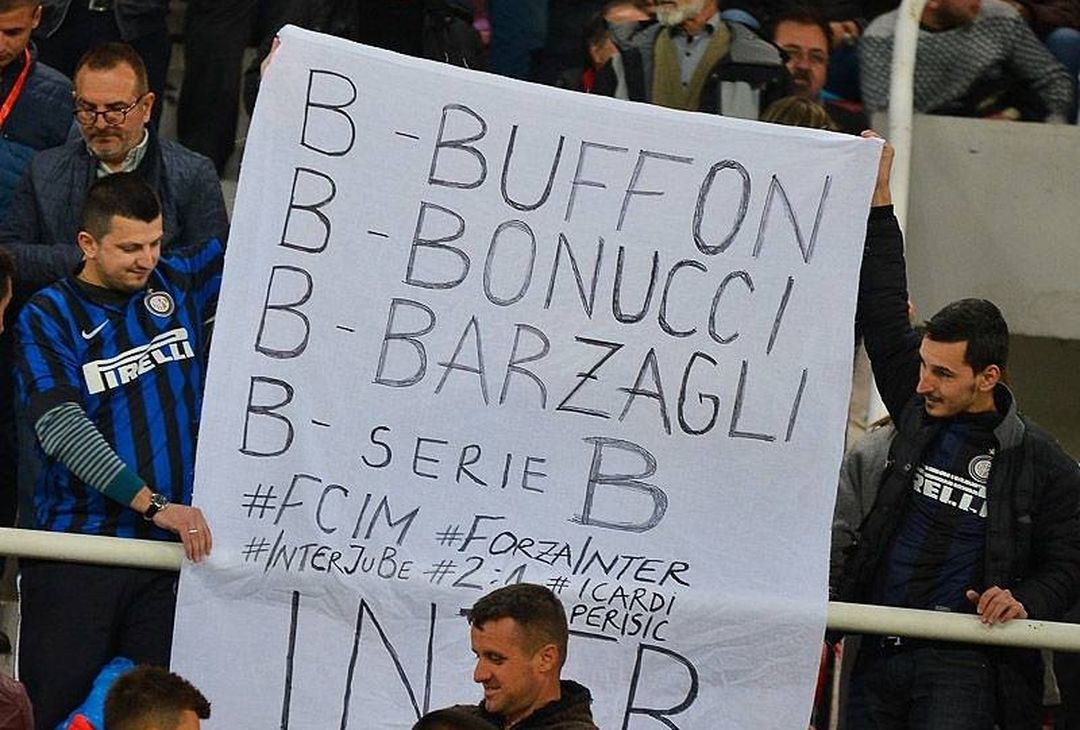 B - BUFFON
B - BONUCCI
B - BARZAGLI
B - SERIE B
#FCIM #FORZAINTER
#INTERJUBE #2:1 #ICARDI
PERISIC
INTER
PIRELLI
PIRELLI